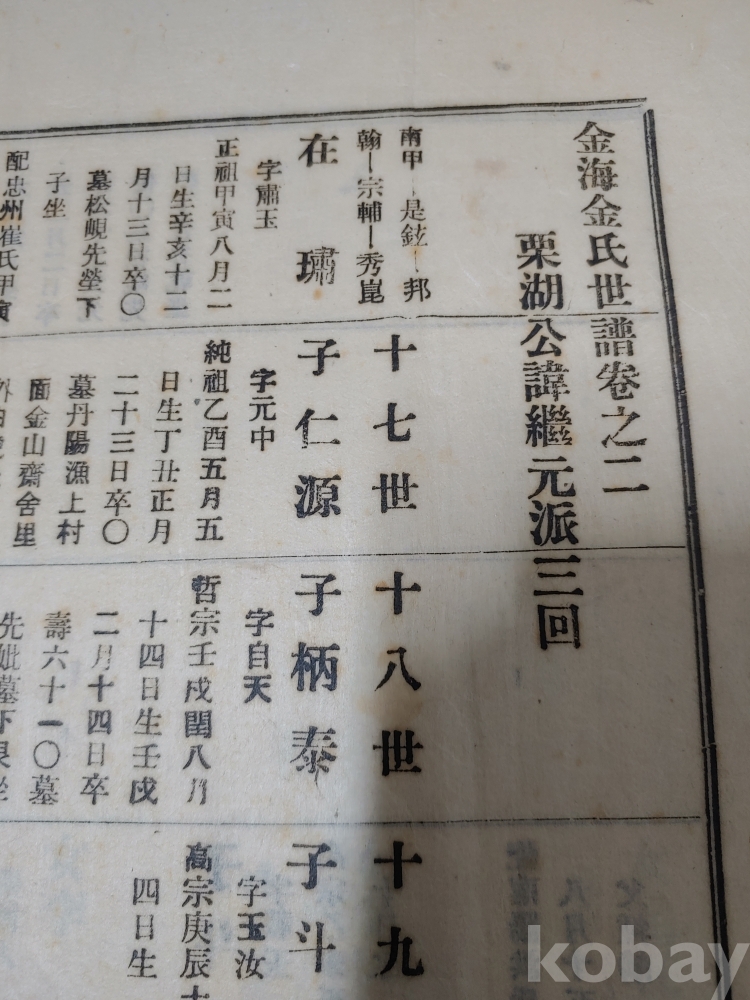 金海金氏世譜卷之二
栗湖公諱繼元派三回
南甲─是鉉─邦
翰─宗輔─秀崑
在璛
字肅玉
正祖甲寅八月二
日生辛亥十二
月十三日卒〇
墓松峴先塋下
子坐
配忠州崔氏甲寅
十七世
子仁源
字元中
純祖乙酉五月五
日生丁丑正月
二十三日卒〇
墓丹陽漁上村
面金山齋舍里
十八世
子柄泰
字自天
哲宗壬戌閏八月
十四日生壬戌
二月十四日卒
壽六十一〇墓
先妣墓下艮坐
十九
子斗
字玉汝
高宗庚辰十
四日生
kobay